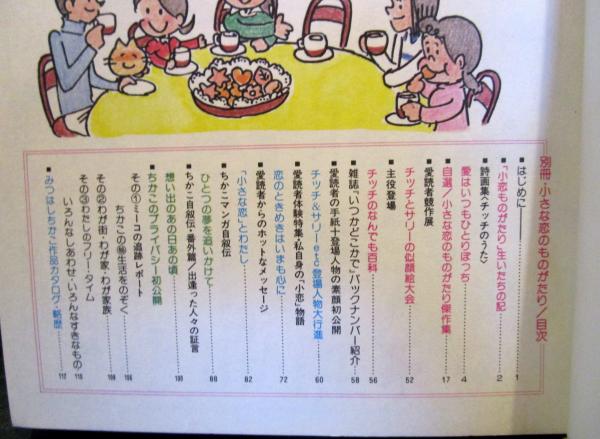 別冊・小さな恋のものがたり/目次
■はじめに 1
■「小恋ものがたり」生いたちの記 2
■詩画集〈チッチのうた〉
愛はいつもひとりぼっち 4
自選/小さな恋のものがたり傑作集 17
■愛読者競作展
チッチとサリーの似顔絵大会 52
■主役登場
チッチのなんでも百科 56
■雑誌「いつかどこかで」バックナンバー紹介 58
■愛読者の手紙+登場人物の素顔初公開
チッチ&サリーetc登場人物大行進 60
■愛読者体験特集・私自身の「小恋」物語
恋のときめきはいまも心に 72
■愛読者からのホットなメッセージ
「小さな恋」とわたし 82
■ちかこマンガ自叙伝
ひとつの夢を追いかけて 88
■ちかこ自叙伝・番外篇/出逢った人々の証言
想い出のあの日あの頃 100
■ちかこのプライバシー初公開
その①ミーコの追跡レポート
ちかこの㊙生活をのぞく 106
その②わが街・わが家・わが家族 109
その③わたしのフリー・タイム
いろんなしあわせ・いろんなすきなもの 110
■みつはしちかこ作品カタログ・略歴 112